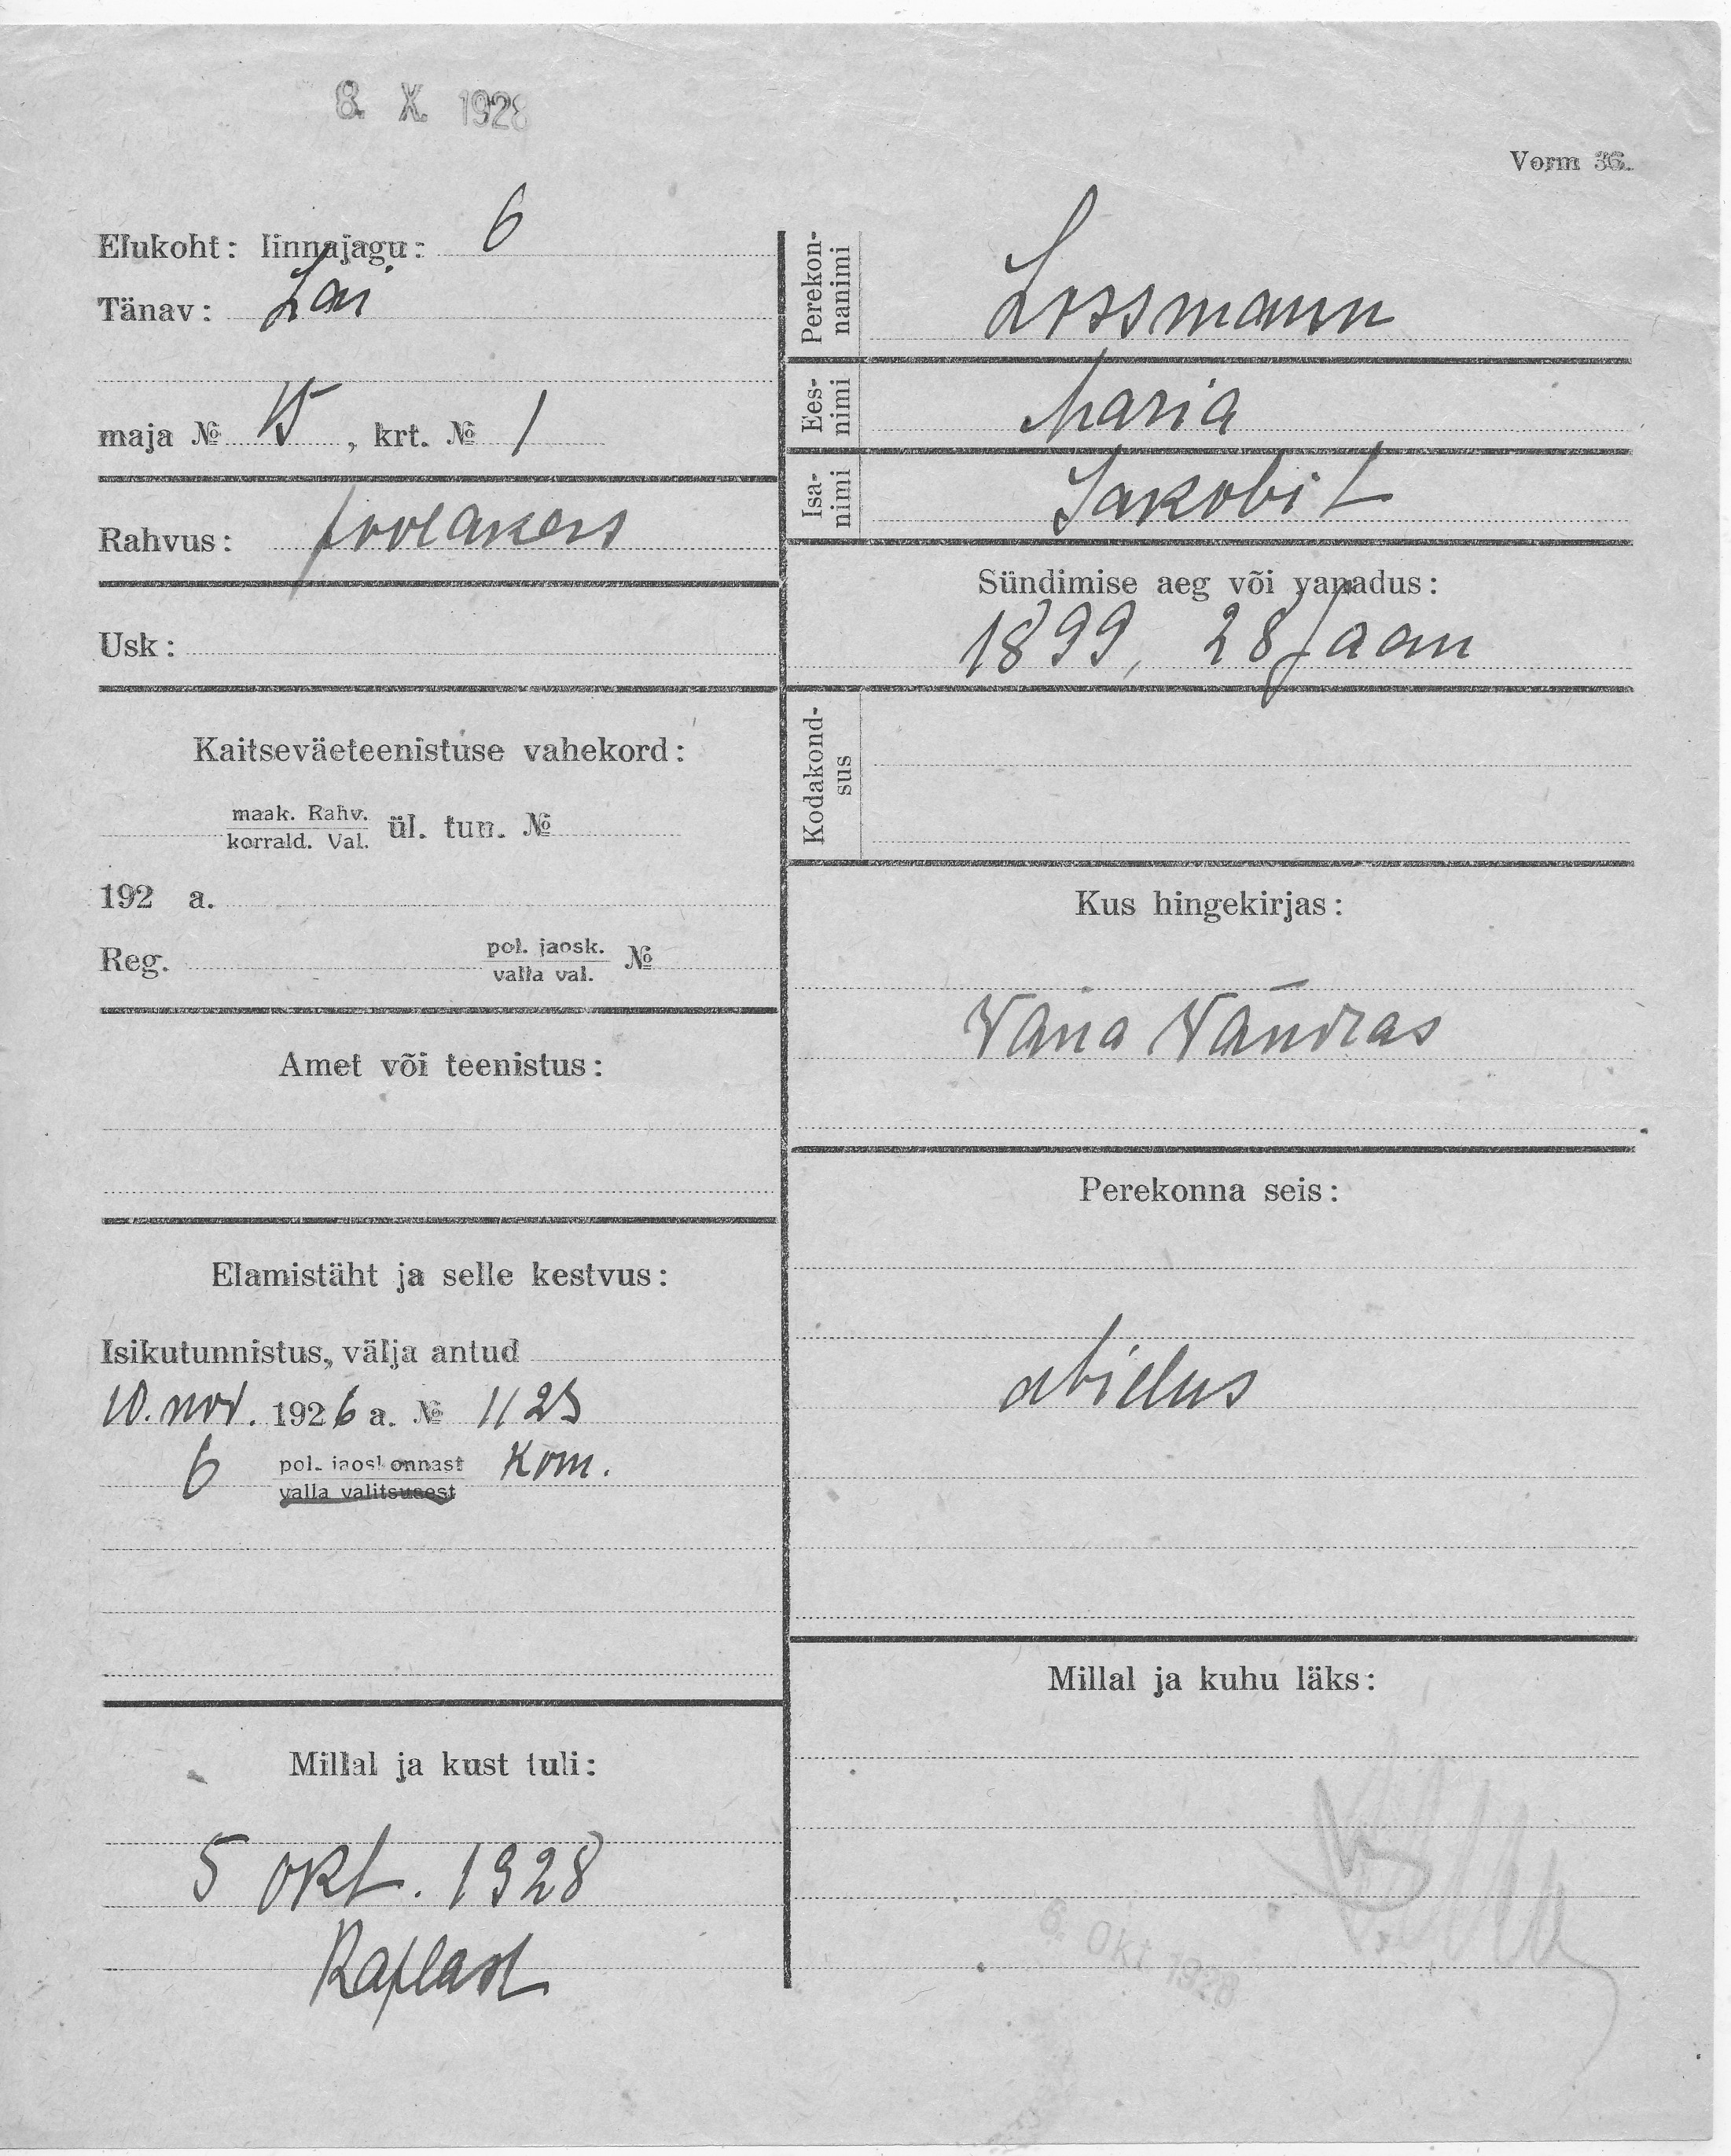 8. X. 1928
Vorm 36.
Elukoht: linnajagu: 6
Tänav: Lai
maja № 15, krt. № 1
Rahvus:
Usk:
Kaitseväeteenistuse vahekord:
maak. Rahv.
korrald. Val.
ül. tun. №
192 a.
Reg. pol. jaosk. №
valla val.
Amet või teenistus:
Elamistäht ja selle kestvus:
Isikutunnistus, välja antud
10. nov. 1926 a. № 1123
6 pol. jaoskonnast Kom.
valla valitsusest
Millal ja kust tuli:
5 okt. 1928
Raplast
Perekon-
nanimi
Lossmann
Ees-
nimi
Maria
Isa-
nimi
Jakobi t
Sündimise aeg või vanadus:
1899, 28 Jaan
Kodakond-
sus
Kus hingekirjas:
Vana Vändras
Perekonna seis:
abielus
Millal ja kuhu läks:
6. Okt 1928